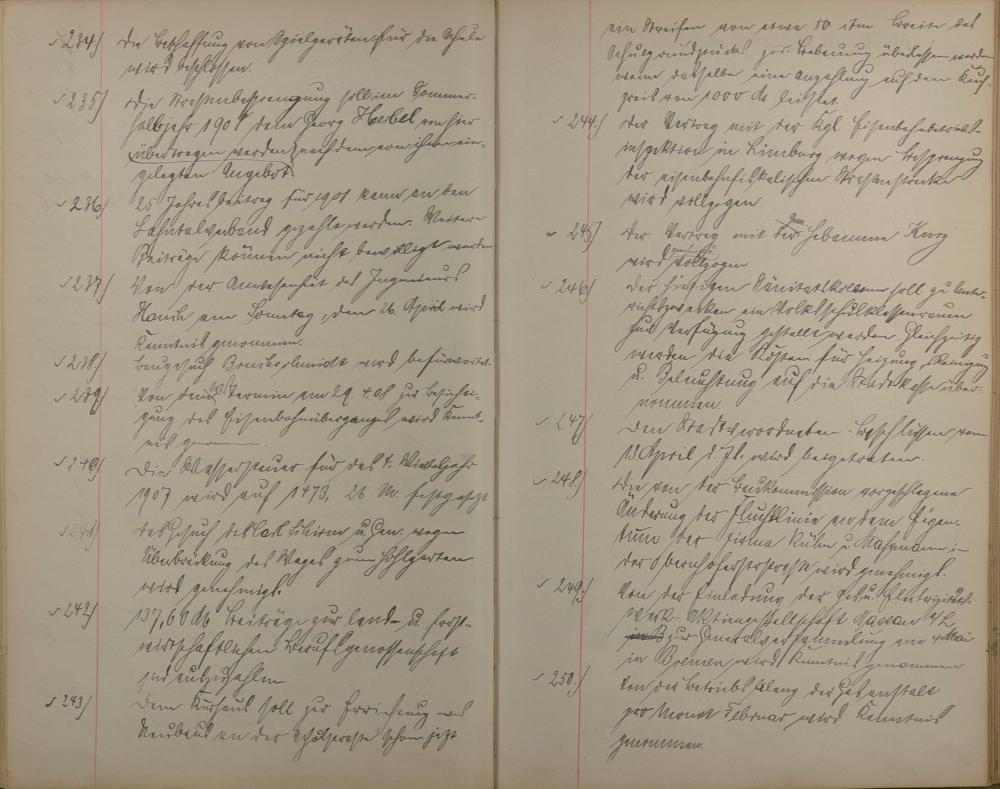 234) Die Beschaffung von Spielgeräten für die Schule
wird beschlossen.
235) Die Straßenbesprengung soll im Sommer-
halbjahr 1908 dem Georg Herbel von hier
übertragen werden nach dem von ihm ein-
gelegten Angebot.
236) 25 Jahresbeitrag für 1908 kann an den
Lahntalverband gezahlt werden. Weitere
Beiträge können nicht bewilligt werden
237) Von der Anwesenheit des Ingenieurs
am Sonntag, den 26. April wird
Kenntnis genommen.
238) Baugesuch wird befürwortet.
239) Von dem Termin am 29. 4. 08 zur Besichti-
gung des Eisenbahnüberganges wird Kennt-
nis genommen.
240) Die Wassersteuer für das 4. Vierteljahr
1907 wird auf 1473,26 M. festgesetzt
241) Das Gesuch des Carl u. Gen. wegen
Überbrückung des Weges zum Hohlgarten
wird genehmigt.
242) 137,60 M Beiträge zur land- u. forst-
wirtschaftlichen Berufsgenossenschaft
sind auszuzahlen
243) Dem Kurhaus soll zur Errichtung des
Neubaus an der Schulstraße schon jetzt
ein Streifen von etwa 50 ctm Breite des
Schulgrundstücks zur Bebauung überlassen werden
wenn dasselbe eine Anzahlung auf den Kauf-
preis von 1000 M leistet.
244.) Der Vertrag mit der Kgl. Eisenbahnbetriebs-
inspektion in Limburg wegen Besprengung
der eisenbahnfiskalischen Straßenstrecke
wird vollzogen.
245) Der Vertrag mit der Hebamme Kurz
wird vollzogen
246) Der hiesigen Sanitätskolonne soll zu Unter-
richtszwecken ein Volksschulklassenraum
zur Verfügung gestellt werden. Gleichzeitig
werden die Kosten für Heizung, Reinigung
u. Beleuchtung auf die Stadtkasse über-
nommen.
247) Den Stadtverordneten-Beschlüssen vom
13 April d. Js. wird beigetreten.
248) Die von der Baukommission vorgeschlagene
Änderung der Fluchtlinie an dem Eigen-
tum der Firma Kühn u. in
der Oberhoferstraße wird genehmigt.
249.) Von der Einladung der Gas u. Elektrizitäts-
werk-Aktiengesellschaft Nassau a/L
zur Generalversammlung am 4 Mai
in Bremen wird Kenntnis genommen
250.) Von der Betriebsbilanz der Gasanstalt
pro Monat Februar wird Kenntnis
genommen.